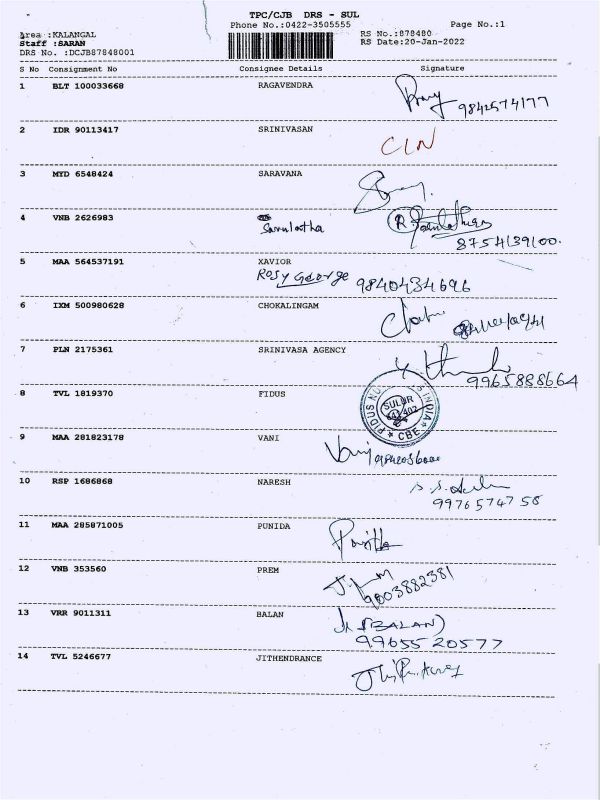 TPC/CJB DRS - SUL
Phone No.:0422-3505555 Page No.:1
Area :KALANGAL RS No.:878480
Staff :SARAN RS Date:20-Jan-2022
DRS No. :DCJB87848001
S No Consignment No Consignee Details Signature
1 BLT 100033668 RAGAVENDRA
9842574177
2 IDR 90113417 SRINIVASAN
CLN
3 MYD 6548424 SARAVANA
4 VNB 2626983 Sarulatha
8754139100.
5 MAA 564537191 XAVIOR
Rosy George 9840434696
6 IXM 500980628 CHOKALINGAM
7 PLN 2175361 SRINIVASA AGENCY
9965888664
8 TVL 1819370 FIDUS
FIDUS INDIA
SULUR
641 402
CBE
9 MAA 281823178 VANI
Vani
10 RSP 1686868 NARESH
9976574758
11 MAA 285871005 PUNIDA
12 VNB 353560 PREM
9003882381
13 VRR 9011311 BALAN
(BALAN)
9965520577
14 TVL 5246677 JITHENDRANCE